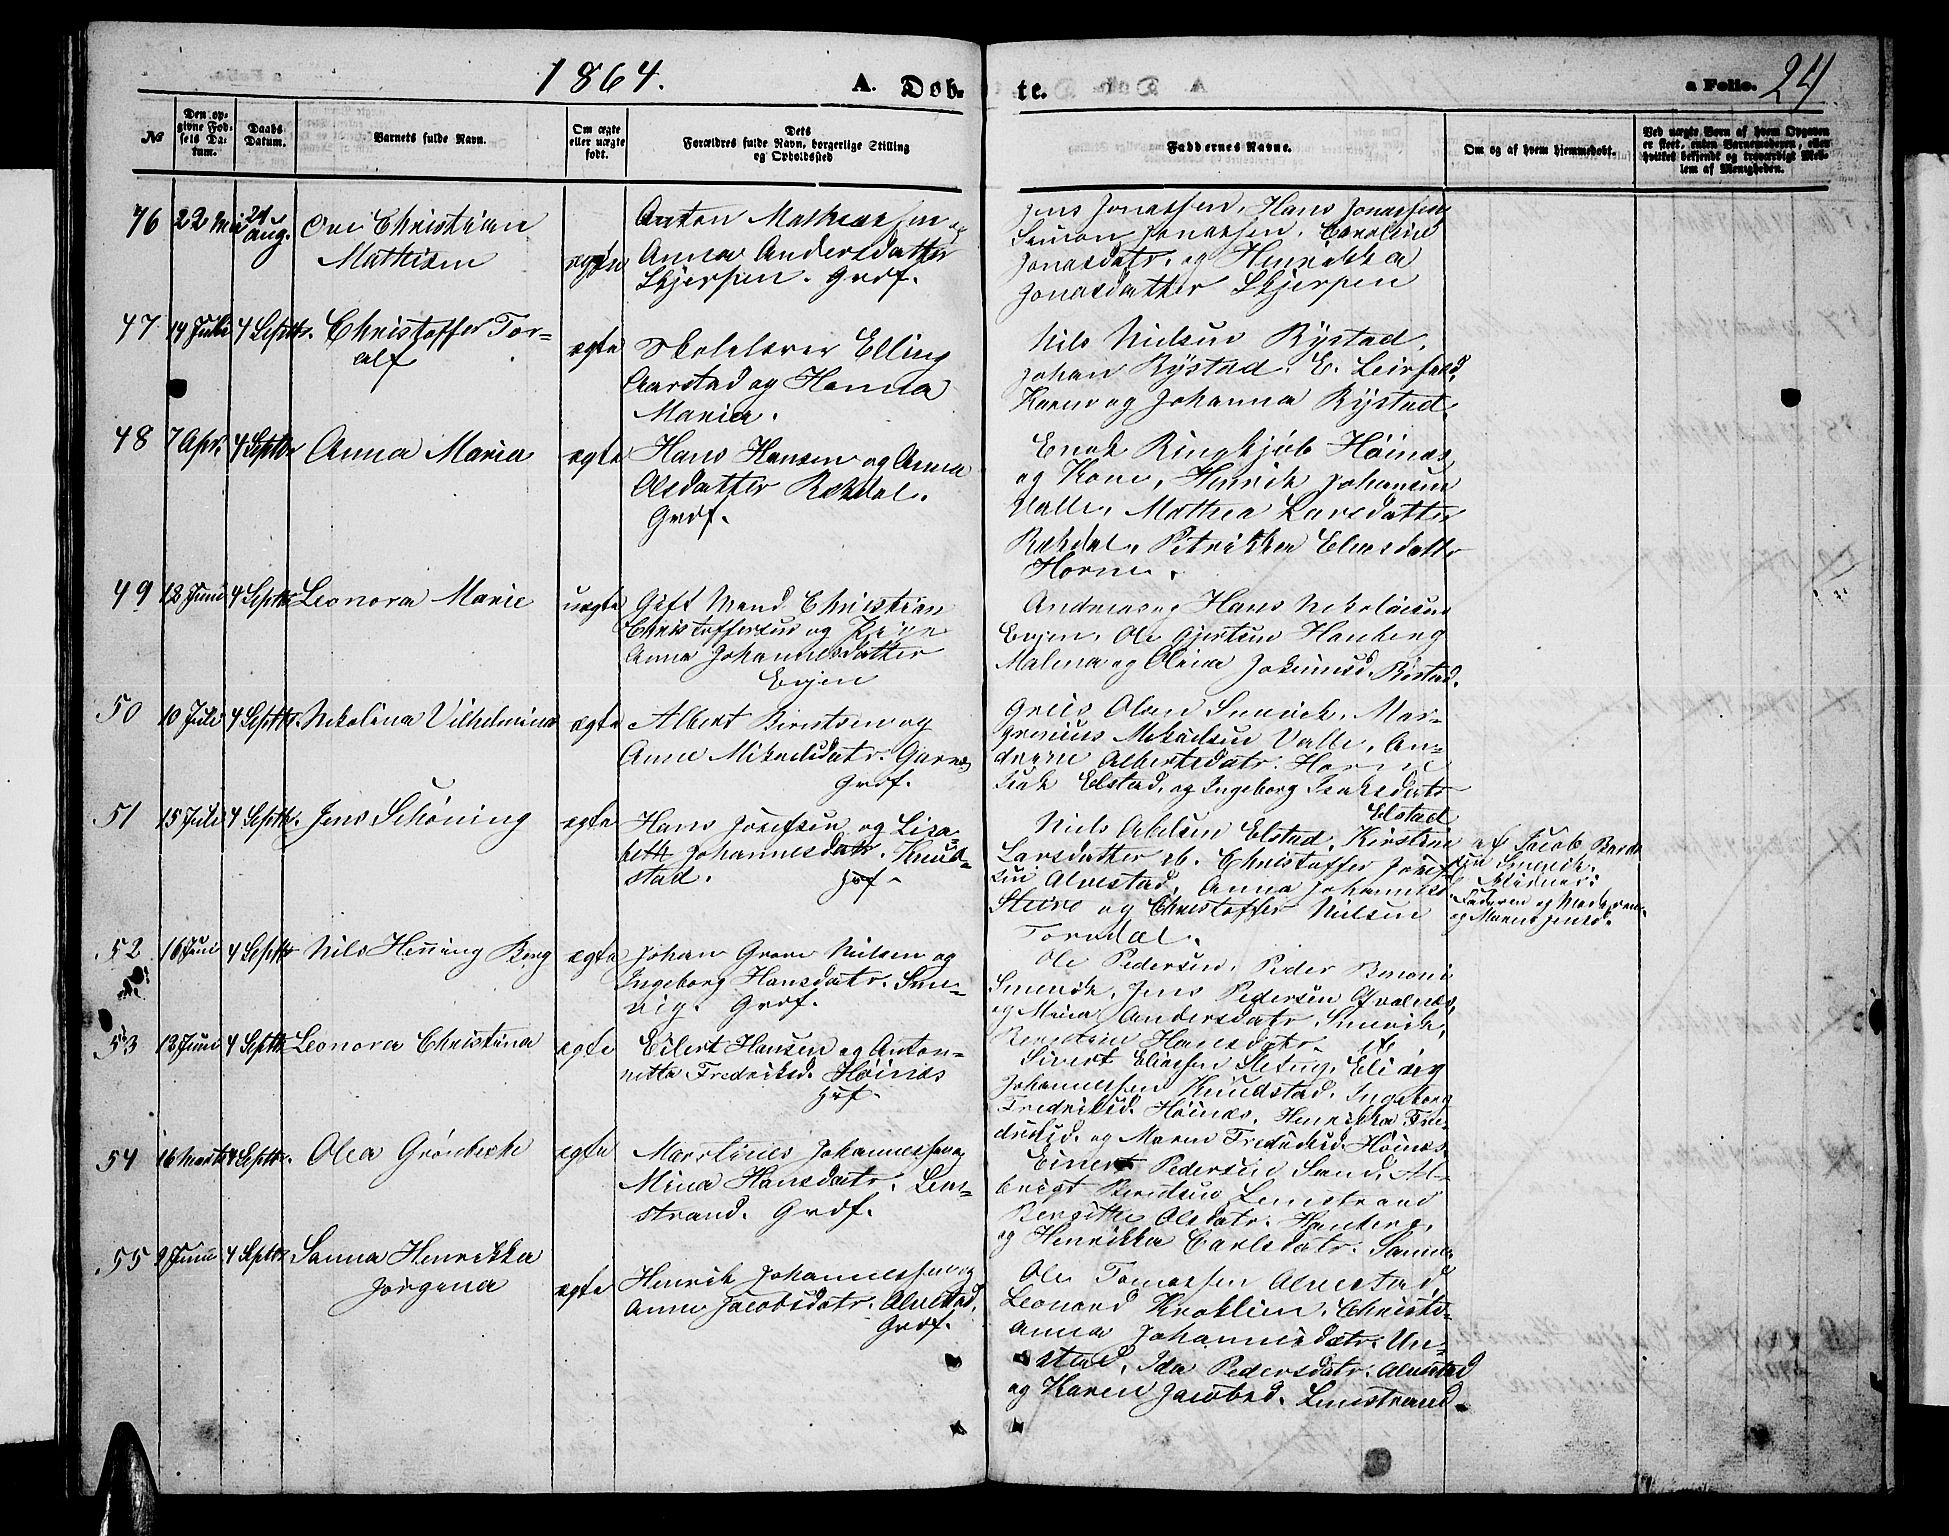 1864.
A. Døb-
te.
a Folio. 24
№
Den op-
givne Fød-
sels Da-
tum.
Daabs
Datum.
Barnets fulde Navn.
Om ægte
eller uægte
født.
Dets
Forældres fulde Navn, borgerlige Stilling
og Opholdssted
Faddernes Navne.
Om og af hvem hjemmedøbt.
Ved uægte Børn af hvem Opgaven
er skeet, enten Barnemoderen, eller
hvilket bekjendt og troværdigt Med-
lem af Menigheden.
46 22 Mai 21 Aug. Ove Christian
Mathisen
ægte
Anton Mathiassen og
Anna Andersdatter
Skjerpen. Grdf.
Jens Jonassen, Hans Jonassen
Simon Jonassen, Caroline
Jonasdatr. og Henrikka
Jonasdatter Skjerpen
47 14 Juli 4 Septbr. Christoffer Tor-
alf
ægte
Skolelærer Elling
Aarstad og Hanna
Maria.
Nils Nielsen Rystad,
Johan Rystad, E. Leirfald,
Karen og Johanna Rystad.
48 7 Apr. 4 Septbr Anna Maria
ægte
Hans Hansen og Anna
Olsdatter Rekdal.
Grdf.
Enok Ringkjøb Höinæs
og Kone, Henrik Johansen
Valle, Mathea Larsdatter
Rekdal, Petrikka Eliasdattr
Horne.
49 12 Juni 4 Septbr Leonora Marie
uægte
Gift Mand Christian
Christoffersen og Pige
Anna Johannesdatter
Evjen
Andreas og Hans Nikolaisen
Evjen, Ole Gjertsen Hanberg
Malena og Olina Jokumsd. Röstad.
50 10 Juli 4 Septbr. Nikolina Vilhelmina
ægte
Albert Berntsen og
Anne Mikaelsdatr. Garnes
Grdf.
Greis Olsen Smevik, Mar-
grenius Mikaelsen Valle, An-
drine Albertsdatr. Horne
Isak Elstad, og Ingeborg Isaksdatr
Elstad
51 15 Juli 4 Septbr. Jens Schöning
ægte
Hans Josefsen og Lisa-
beth Johannesdatr. Knud-
stad. Hsf.
Niels Abelsen Elstad, Kirstina
Larsdatter ib. Christoffer Josef-
sen Alvestad, Anna Johannesd.
Steiro og Christoffer Nilsen
Torvdal.
af Jacob
Smevik.
Vidner:
Faderen og
og Maren Jensd.
52 16 Juni 4 Septbr Nils Henning Berg
ægte
Johan Grove Nilsen og
Ingeborg Hansdatr. Sme-
vig. Grdf.
Ole Pedersen, Peder
Smevik, Jens Pedersen
og Mina Andersdatr. Smevik,
Berntine Hansdatr. ib.
53 13 Juni 4 Septbr Leonora Christina
ægte
Eilert Hansen og Anton-
netta Fredriksd. Höinæs
Hsf.
Sivert Eliassen Sletng, Eliseus
Johannessen Knudstad, Ingeborg
Fredriksd. Höinæs, Henrikka Fre-
driksd. og Maren Fredriksd. Höinæs.
54 16 Marts 4 Septbr. Olea Grönbeck
ægte
Martinus Johannessen og
Mina Hansdatr. Lem-
strand. Grdf.
Einert Pedersen Sand, Al-
brigt Berntsen Lemstrand
Bergitte Olsdatr. Hanberg,
og Henrikka Carlsdatr. Sannes
55 9 Juni 4 Septbr Sanna Henrikka
Jörgena
ægte
Henrik Johannessen og
Anne Jacobsdatr. Alvestad.
Grdf.
Ole Tomassen Alvestad,
Leonard Kroklien, Christi-
anna Johannesdatr. Un-
stad, Ida Pedersdatr. Alvestad
og Karen Jacobsd. Lemstrand.